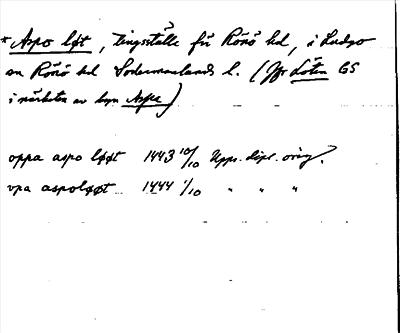 * Aspo løt, tingsställe för Rönö hd, i Ludgo
sn Rönö hd Södermanlands l. (Jfr Löten GS
i närheten av byn Aspa)
oppa aspo løøt 1443 10/10 Upps. dipl. orig.
vpa aspoløøt 1444 1/10 " " "